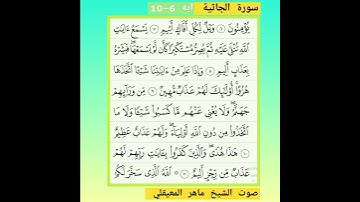 سورة الجاثية آية 6-10
يُؤْمِنُونَ ۝ وَيْلٌ لِّكُلِّ أَفَّاكٍ أَثِيمٍ ۝ يَسْمَعُ ءَايَٰتِ
ٱللَّهِ تُتْلَىٰ عَلَيْهِ ثُمَّ يُصِرُّ مُسْتَكْبِرًا كَأَن لَّمْ يَسْمَعْهَا ۖ فَبَشِّرْهُ
بِعَذَابٍ أَلِيمٍ ۝ وَإِذَا عَلِمَ مِنْ ءَايَٰتِنَا شَيْـًٔا ٱتَّخَذَهَا
هُزُوًا ۚ أُو۟لَٰٓئِكَ لَهُمْ عَذَابٌ مُّهِينٌ ۝ مِّن وَرَآئِهِمْ
جَهَنَّمُ ۖ وَلَا يُغْنِى عَنْهُم مَّا كَسَبُوا۟ شَيْـًٔا وَلَا مَا
ٱتَّخَذُوا۟ مِن دُونِ ٱللَّهِ أَوْلِيَآءَ ۖ وَلَهُمْ عَذَابٌ عَظِيمٌ
۝ هَٰذَا هُدًى ۖ وَٱلَّذِينَ كَفَرُوا۟ بِـَٔايَٰتِ رَبِّهِمْ لَهُمْ
عَذَابٌ مِّن رِّجْزٍ أَلِيمٌ ۝ ٱللَّهُ ٱلَّذِى سَخَّرَ لَكُمُ
صوت الشيخ ماهر المعيقلي